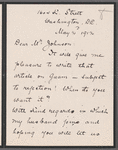 1220 L. Street
Washington, DC
May 2nd 1912
Dear Mr Johnson:
It will give me
pleasure to write that
article on Guam – subject
to rejection! When do you
want it?
With kind regards in which
my husband joins and
hoping you will let us